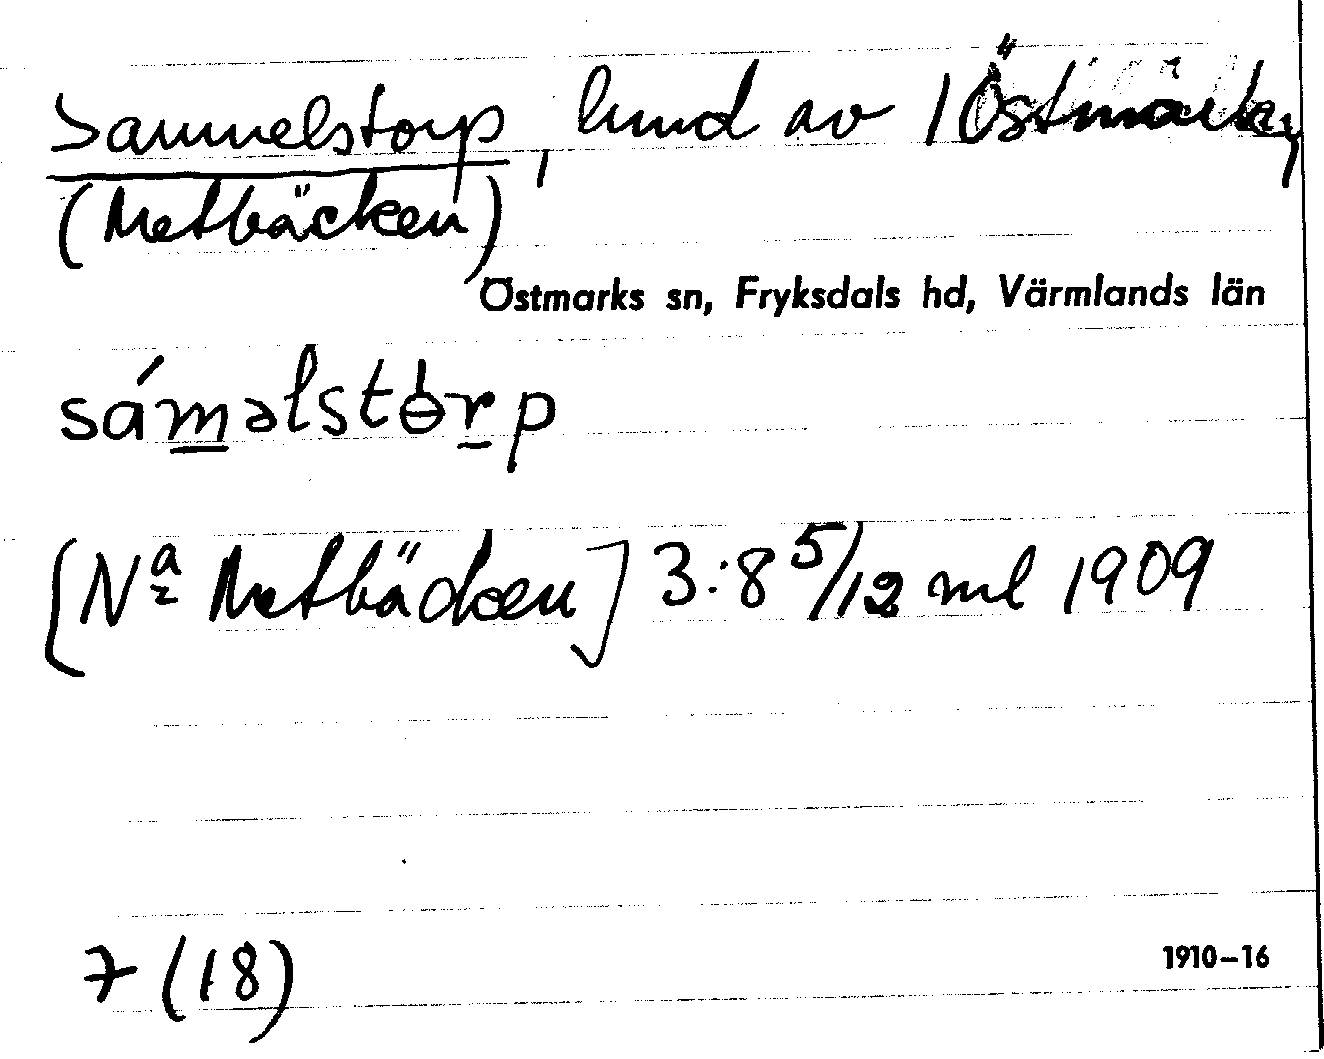 Samuelstorp, hmd av 1 Östmark,
(Metbäcken)
Östmarks sn, Fryksdals hd, Värmlands län
sáməlstɵrp
[Na Metbäcken] 3:8 5/12 ml 1909
7 (18)
1910–16